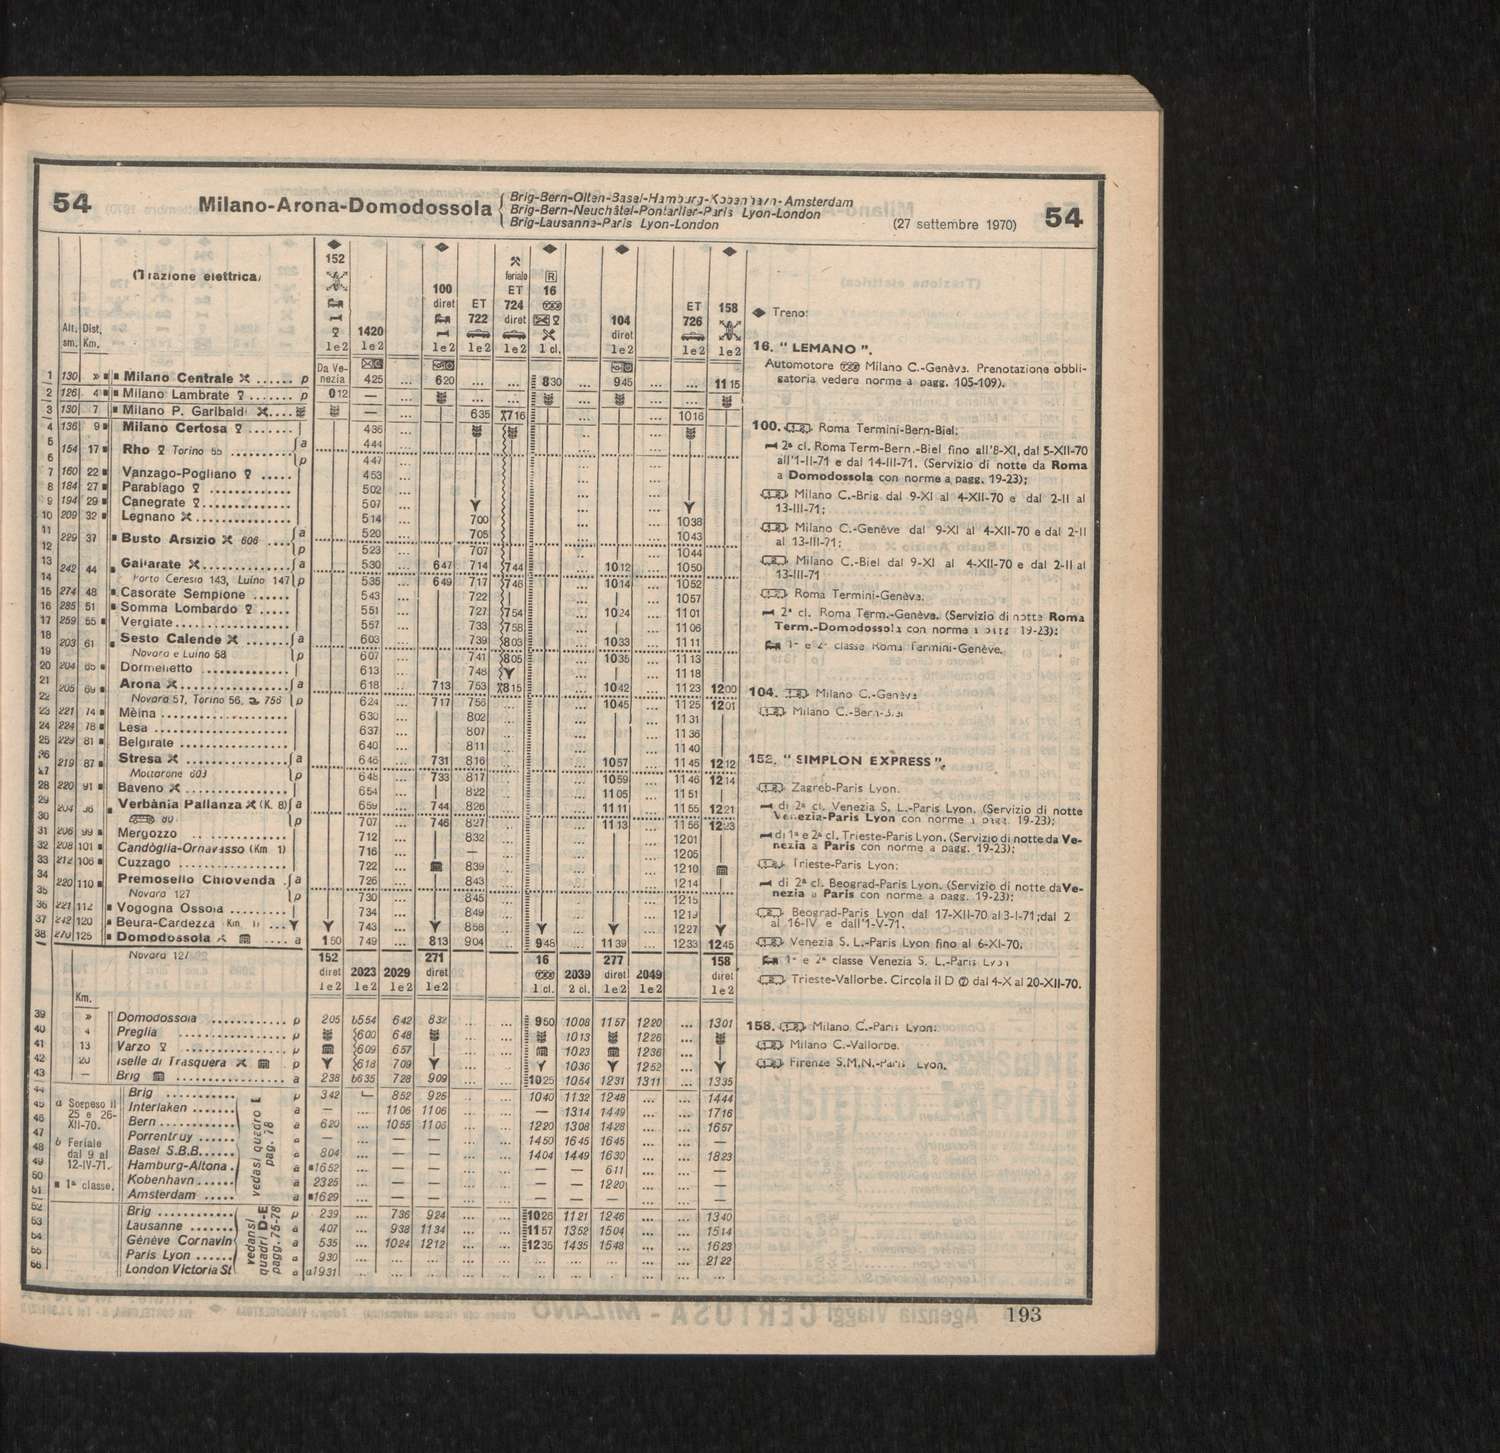 54
Milano-Arona-Domodossola
Brig-Bern-Olten-Basel-Hamburg-Kobenhavn-Amsterdam
Brig-Bern-Neuchâtel-Pontarlier-Paris Lyon-London
Brig-Lausanne-Paris Lyon-London
(27 settembre 1970)
54
(Trazione elettrica)
152 100 diret ET 722 feriale ET 724 diret R 16 104 diret ET 726 158
Alt. sm. Dist. Km. 1e2 1420 1e2 1e2 1e2 1e2 1 cl. 1e2 1e2 1e2
1 130 » Milano Centrale ...... p Da Venezia 425 ... 620 ... ... 830 ... 945 ... ... 1115
2 126 4 Milano Lambrate ....... p 012 — ... ... ... ... ...
3 130 7 Milano P. Garibaldi .... — ... 635 716 ... ... 1016
4 136 9 Milano Certosa ....... 436 ...
5 154 17 Rho Torino 55 .......... a 444
6 p 447 ...
7 160 22 Vanzago-Pogliano ..... 453 ...
8 184 27 Parabiago ............. 502 ...
9 194 29 Canegrate .............. 507 ...
10 209 32 Legnano ............... 514 ... 700 ... ... 1038
11 229 37 Busto Arsizio 606 .... a 520 ... 705 ... ... 1043
12 p 523 ... 707 ... ... 1044
13 242 44 Gallarate ............. a 530 ... 647 714 744 ... 1012 ... 1050
14 Porto Ceresio 143, Luino 147 p 535 ... 649 717 746 ... 1014 ... 1052
15 274 48 Casorate Sempione ...... 543 ... 722 ... ... 1057
16 285 51 Somma Lombardo ..... 551 ... 727 754 ... 1024 ... 1101
17 259 55 Vergiate ................ 557 ... 733 758 ... ... 1106
18 203 61 Sesto Calende ....... a 603 ... 739 803 ... 1033 ... 1111
19 Novara e Luino 58 p 607 ... 741 805 ... 1035 ... 1113
20 204 65 Dormelletto ............ 613 ... 748 ... ... 1118
21 205 69 Arona ................ a 618 ... 713 753 815 ... 1042 ... 1123 1200
22 Novara 57, Torino 56, 756 p 624 ... 717 756 ... ... 1045 ... 1125 1201
23 221 74 Mèina .................. 630 ... 802 ... ... ... 1131
24 224 78 Lesa .................... 637 ... 807 ... ... ... 1136
25 229 81 Belgirate ................ 640 ... 811 ... ... ... 1140
26 219 87 Stresa ................ a 646 ... 731 816 ... ... 1057 ... 1145 1212
27 Mottarone 603 p 648 ... 733 817 ... ... 1059 ... 1146 1214
28 220 91 Baveno ................ 654 ... 822 ... ... 1105 ... 1151
29 204 96 Verbània Pallanza (K. 8) a 659 ... 744 826 ... ... 1111 ... 1155 1221
30 p 707 ... 746 827 ... ... 1113 ... 1156 1223
31 206 99 Mergozzo .............. 712 ... 832 ... ... ... 1201
32 208 101 Candòglia-Ornavasso (Km 1) 716 ... — ... ... ... 1205
33 212 106 Cuzzago ................ 722 ... 839 ... ... ... 1210
34 220 110 Premosello Chiovenda . a 726 ... 843 ... ... ... 1214
35 Novara 127 p 730 ... 845 ... ... ... 1215
36 221 112 Vogogna Ossola ......... 734 ... 849 ... ... ...
37 242 120 Beura-Cardezza ... 743 ... 858 ... ... ... 1227
38 270 125 Domodossola .... a 150 749 ... 813 904 ... 948 ... 1139 ... 1233 1245
Novara 127
152 diret 1e2 2023 1e2 2029 1e2 271 diret 1e2 16 1 cl. 2039 2 cl. 277 diret 1e2 2049 1e2 158 diret 1e2
Km.
39 » Domodossola ............ p 205 b554 642 832 ... ... 950 1008 1157 1220 ... 1301
40 4 Preglia .............. p 600 648 ... ... 1013 1226 ...
41 13 Varzo ................ p 609 657 ... ... 1023 1236 ...
42 20 Iselle di Trasquera p 618 709 ... ... 1036 1252 ...
43 — Brig .................. a 238 b635 728 909 ... ... 1025 1054 1231 1311 ... 1335
44 Brig ........... p 342 852 925 1040 1132 1248 ... ... 1444
45 Interlaken ....... a — ... 1106 1106 — 1314 1449 ... ... 1716
46 Bern ............ a 620 ... 1055 1105 1220 1308 1428 ... ... 1657
47 Porrentruy ...... a — ... — — 1450 1645 1645 ... ... —
48 Basel S.B.B. ..... a 804 ... — — 1404 1449 1630 ... ... 1823
49 Hamburg-Altona . a 1652 ... — — — — 611 ... ... —
50 Kobenhavn ...... a 2325 ... — — — — 1220 ... ... —
51 Amsterdam ..... a 1629 ... — — — — — ... ... —
vedasi quadro E pag. 78
52 Brig ............ p 239 ... 736 924 1026 1121 1246 ... ... 1340
53 Lausanne ....... a 407 ... 938 1134 1157 1352 1504 ... ... 1514
54 Génève Cornavin a 535 ... 1024 1212 1235 1435 1548 ... ... 1623
55 Paris Lyon ...... a 930 ... ... ... ... ... ... ... ... 2122
56 London Victoria St a a1931 ... ... ... ... ... ... ... ... ...
vedansi quadri D-E pagg. 75-78
a Sospeso il 25 e 26-XII-70.
b Feriale dal 9 al 12-IV-71.
1ª classe.
Treno:
16. “ LEMANO ”.
Automotore Milano C.-Genèva. Prenotazione obbli-
gatoria vedere norme a pagg. 105-109).
100. Roma Termini-Bern-Biel;
2ª cl. Roma Term-Bern.-Biel fino all'8-XI, dal 5-XII-70
all'1-II-71 e dal 14-III-71. (Servizio di notte da Roma
a Domodossola con norme a pagg. 19-23);
Milano C.-Brig dal 9-XI al 4-XII-70 e dal 2-II al
13-III-71;
Milano C.-Genève dal 9-XI al 4-XII-70 e dal 2-II
al 13-III-71;
Milano C.-Biel dal 9-XI al 4-XII-70 e dal 2-II al
13-III-71
Roma Termini-Genèva.
2ª cl. Roma Term.-Genèva. (Servizio di notte Roma
Term.-Domodossola con norme a pagg. 19-23);
1ª e 2ª classe Roma Termini-Genève.
104. Milano C.-Genèva
Milano C.-Bern-Biel
152. “ SIMPLON EXPRESS ”.
Zagreb-Paris Lyon.
di 2ª cl. Venezia S. L.-Paris Lyon. (Servizio di notte
Venezia-Paris Lyon con norme a pagg. 19-23);
di 1ª e 2ª cl. Trieste-Paris Lyon. (Servizio di notte da Ve-
nezia a Paris con norme a pagg. 19-23);
Trieste-Paris Lyon;
di 2ª cl. Beograd-Paris Lyon. (Servizio di notte da Ve-
nezia a Paris con norme a pagg. 19-23);
Beograd-Paris Lyon dal 17-XII-70 al 3-I-71; dal 2
al 16-IV e dall'1-V-71.
Venezia S. L.-Paris Lyon fino al 6-XI-70.
1ª e 2ª classe Venezia S. L.-Paris Lyon
Trieste-Vallorbe. Circola il D ⑦ dal 4-X al 20-XII-70.
158. Milano C.-Paris Lyon;
Milano C.-Vallorbe.
Firenze S.M.N.-Paris Lyon.
193